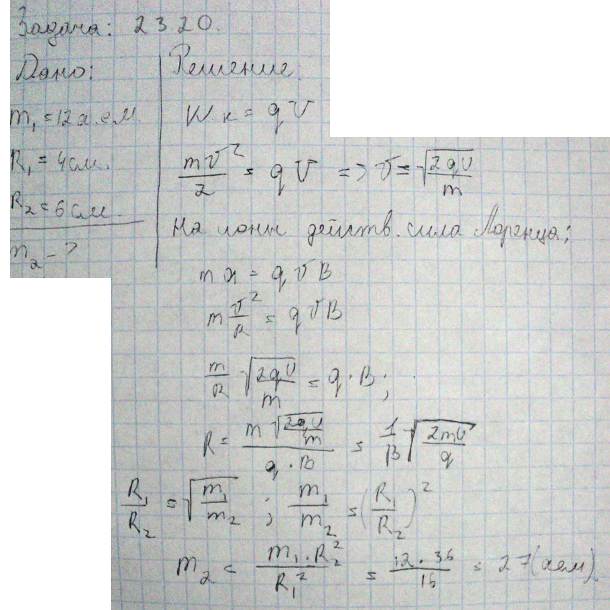 Задача: 23.20.
Дано:
m₁ = 12 а.е.м.
R₁ = 4 см.
R₂ = 6 см.
m₂ - ?
Решение
Wк = qU
mv²/2 = qU => v = √(2qU/m)
На ионы действ. сила Лоренца:
ma = qvB
m v²/R = qvB
m/R √(2qU/m) = q·B;
R = m√(2qU/m) / (q·B) = 1/B √(2mU/q)
R₁/R₂ = √(m₁/m₂) ; m₁/m₂ = (R₁/R₂)²
m₂ = m₁·R₂²/R₁² = 12·36/16 = 27 (аем)